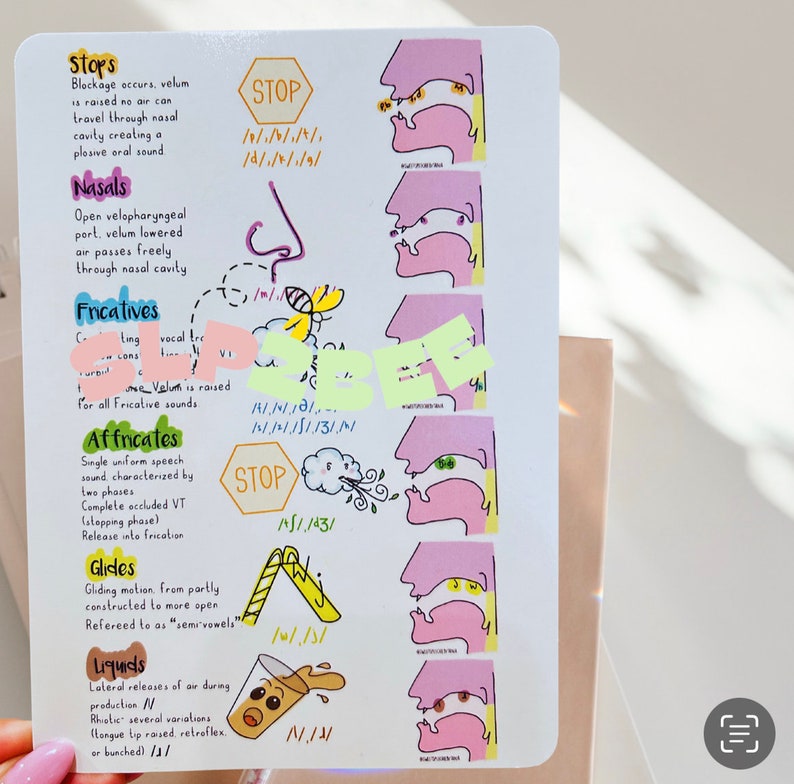 Stops
Blockage occurs, velum
is raised no air can
travel through nasal
cavity creating a
plosive oral sound.
STOP
/p/,/b/,/t/,
/d/,/k/,/g/
p,b
t,d
Nasals
Open velopharyngeal
port, velum lowered
air passes freely
through nasal cavity
/m/,
Fricatives
vocal
VT
Velum is raised
for all Fricative sounds
SLP2BEE
/f/,/v/,/θ/,
/s/,/z/,/ʃ/,/ʒ/,/h/
h
Affricates
Single uniform speech
sound, characterized by
two phases
Complete occluded VT
(stopping phase)
Release into frication
STOP
/tʃ/,/dʒ/
Glides
Gliding motion, from partly
constructed to more open
Refereed to as "semi-vowels"
W j
/w/,/j/
j w
Liquids
Lateral releases of air during
production. /l/
Rhiotic- several variations
(tongue tip raised, retroflex,
or bunched) /ɹ/
/l/,/ɹ/
l ɹ